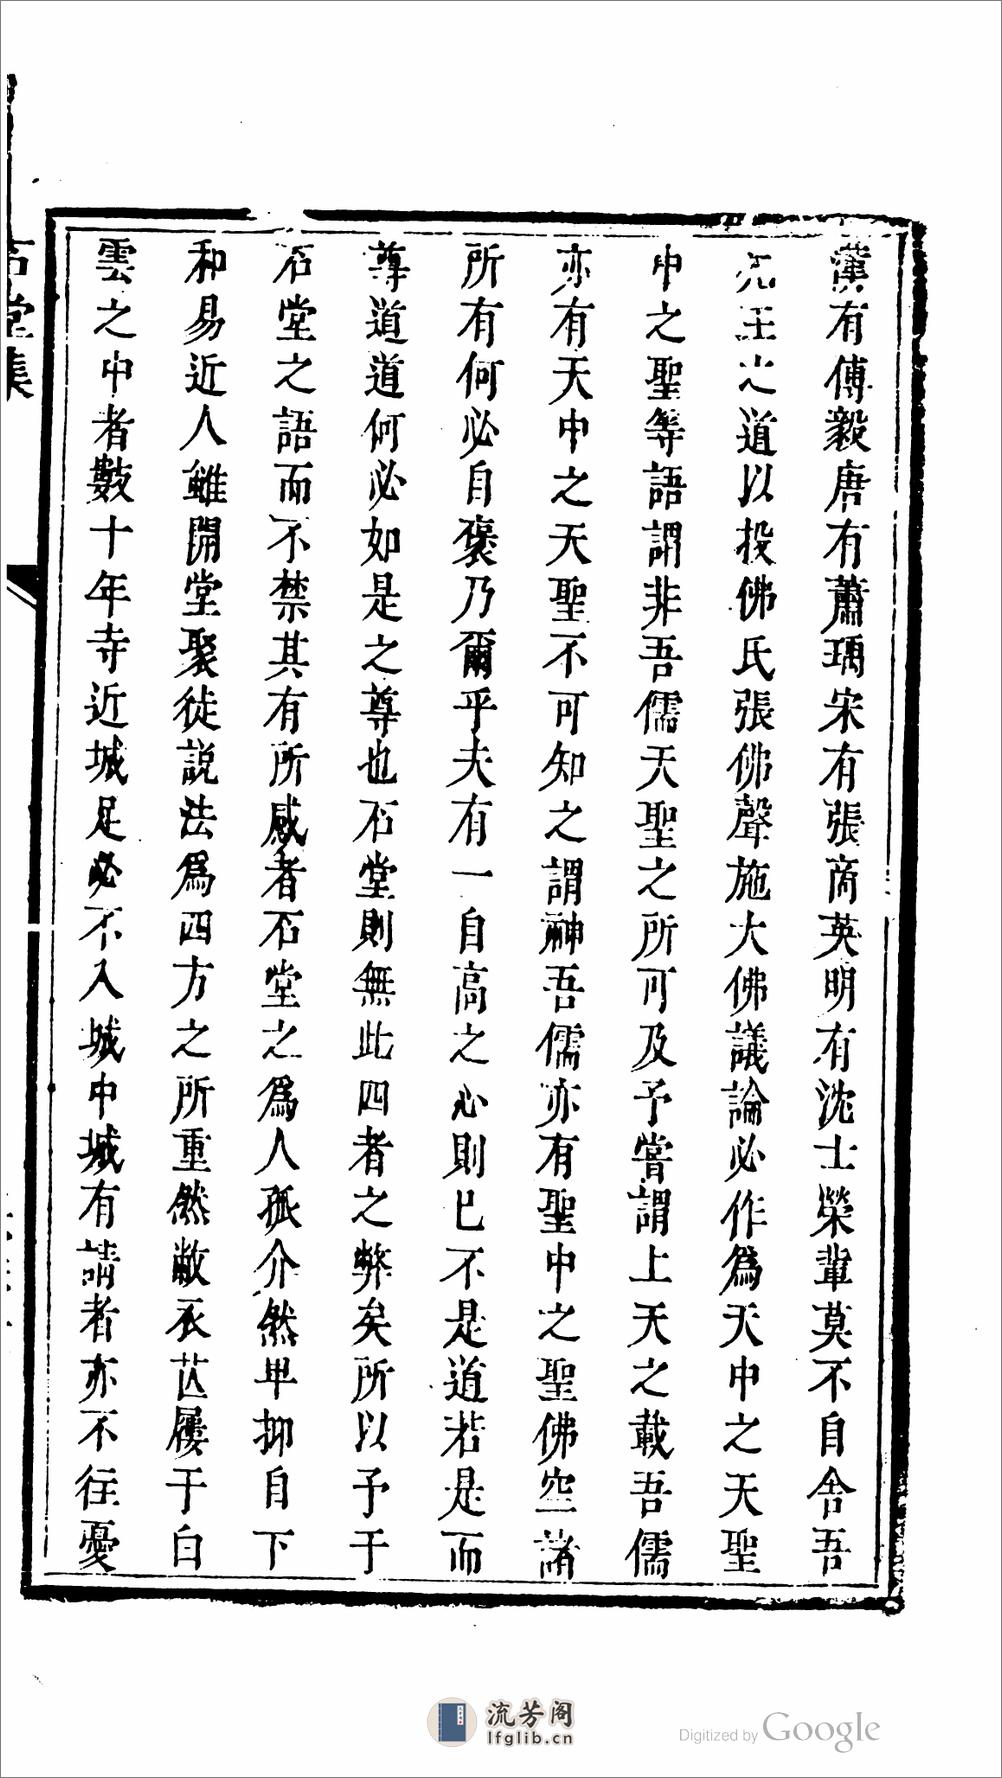 漢有傅毅唐有蕭瑀宋有張商英明有沈士榮輩莫不自舍吾
先王之道以投佛氏張佛聲施大佛議論必作爲天中之天聖
中之聖等語謂非吾儒天聖之所可及予嘗謂上天之載吾儒
亦有天中之天聖不可知之謂神吾儒亦有聖中之聖佛空諸
所有何必自褒乃爾乎夫有一自高之心則已不是道若是而
尊道道何必如是之尊也石堂則無此四者之弊矣所以予于
石堂之語而不禁其有所感者石堂之爲人孤介然卑抑自下
和易近人雖開堂聚徒說法爲四方之所重然敝衣苴屨于白
雲之中者數十年寺近城足必不入城中城有請者亦不往憂
石堂集
流芳阁
lfglib.cn
Digitized by Google